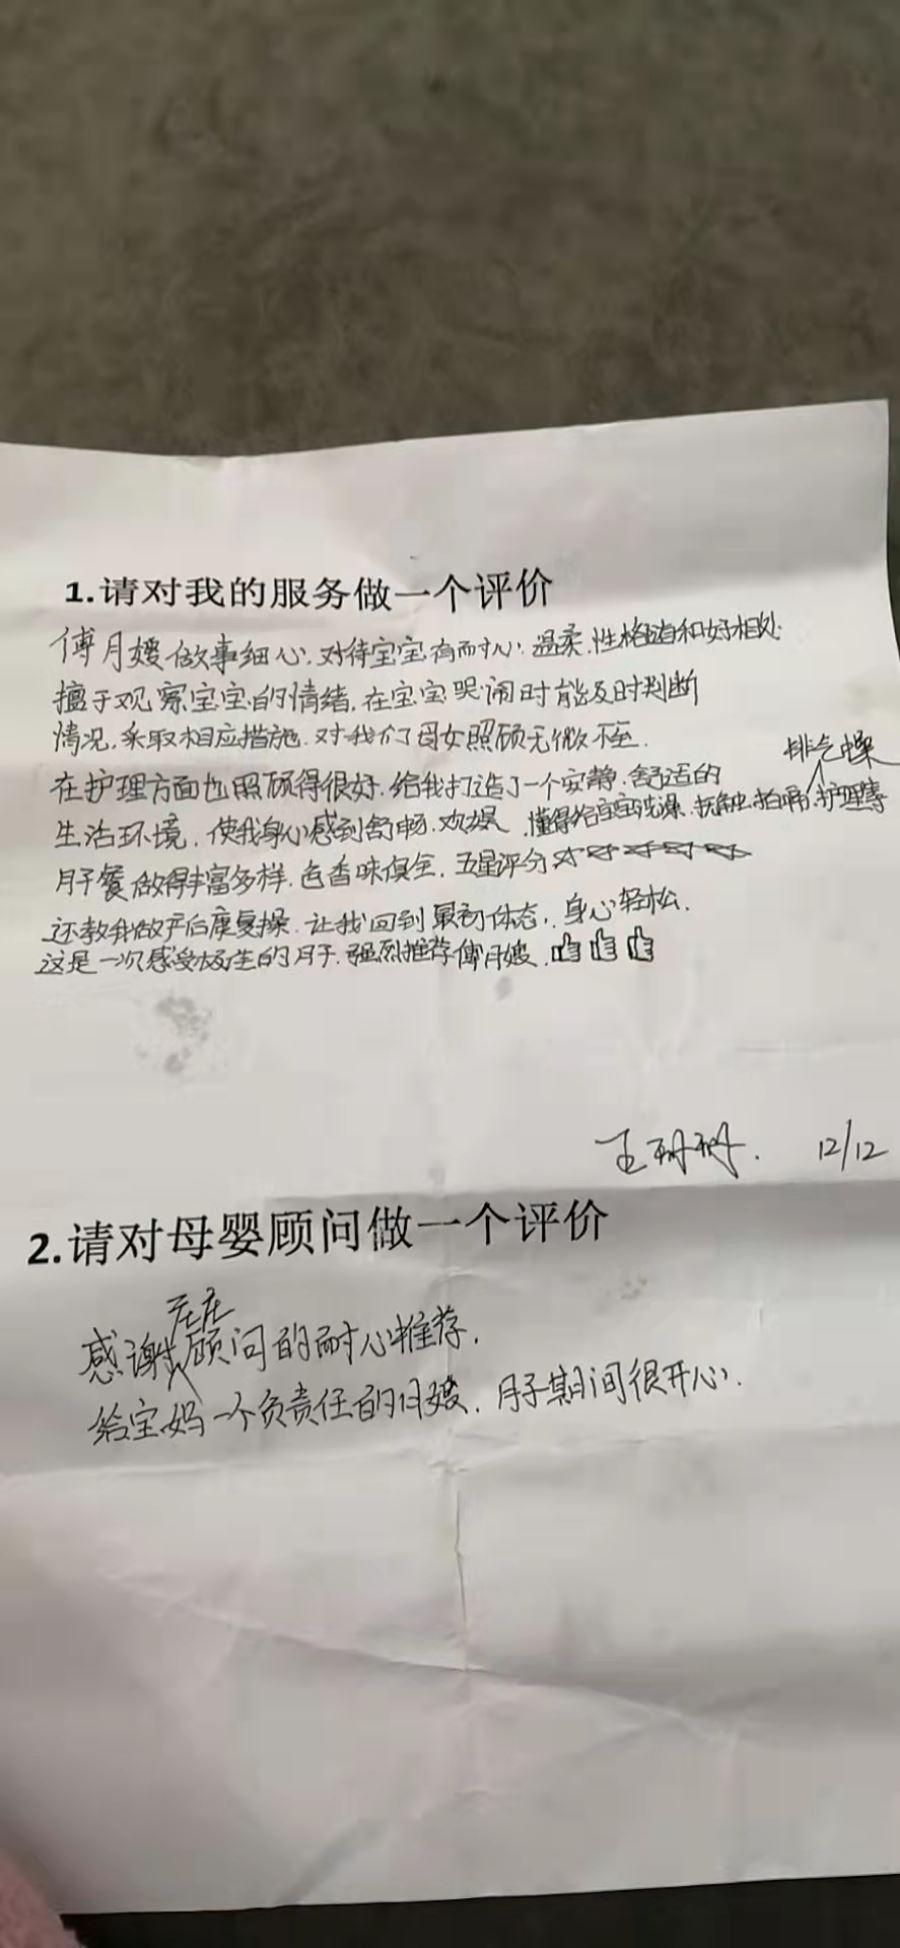 1.请对我的服务做一个评价
傅月嫂做事细心,对待宝宝有耐心,温柔,性格随和好相处
擅于观察宝宝的情绪,在宝宝哭闹时能及时判断
情况,采取相应措施.对我们母女照顾无微不至.
在护理方面也照顾得很好,给我打造了一个安静.舒适的
排气操
生活环境,使我身心感到舒畅,欢娱,懂得给宝宝洗澡,抚触,拍嗝,护理等
月子餐做得丰富多样,色香味俱全,五星评分☆☆☆☆☆
还教我做产后康复操,让我回到最初体态,身心轻松.
这是一次感受极佳的月子,强烈推荐傅月嫂.👍👍👍
王 12/12
2.请对母婴顾问做一个评价
感谢顾问的耐心推荐,
给宝妈一个负责任的月嫂,月子期间很开心.